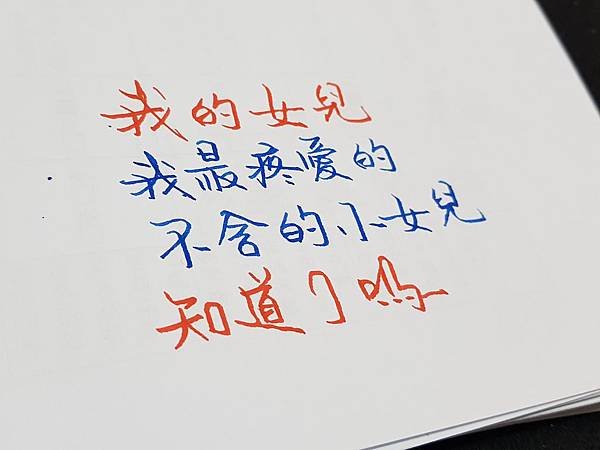 我的女兒
我最疼愛的
不舍的小女兒
知道了嗎